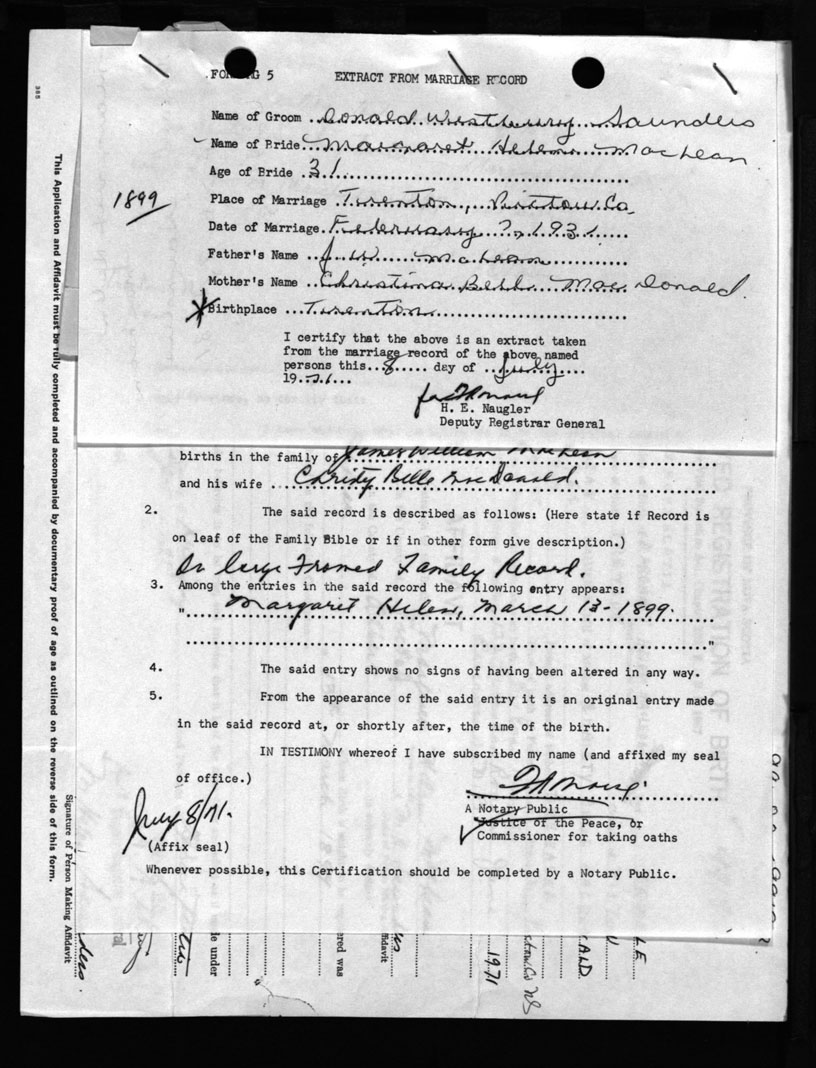 385
EXTRACT FROM MARRIAGE RECORD
Name of Groom Donald Westbury Saunders
Name of Bride Margaret Helen MacLean
Age of Bride 31
1899
Place of Marriage Trenton, Pictou Co.
Date of Marriage February 7, 1931
Father's Name J. W. McLean
Mother's Name Christina Bell MacDonald
Birthplace Trenton
I certify that the above is an extract taken
from the marriage record of the above named
persons this 8 day of July
19
H. E. Naugler
Deputy Registrar General
births in the family of James William MacLean
and his wife Christy Belle MacDonald.
2. The said record is described as follows: (Here state if Record is
on leaf of the Family Bible or if in other form give description.)
Large Framed Family Record.
3. Among the entries in the said record the following entry appears:
" Margaret Helen, March 13-1899.
"
4. The said entry shows no signs of having been altered in any way.
5. From the appearance of the said entry it is an original entry made
in the said record at, or shortly after, the time of the birth.
IN TESTIMONY whereof I have subscribed my name (and affixed my seal
of office.)
July 8/71.
(Affix seal)
A Notary Public
Justice of the Peace, or
Commissioner for taking oaths
Whenever possible, this Certification should be completed by a Notary Public.
This Application and Affidavit must be fully completed and accompanied by documentary proof of age as outlined on the reverse side of this form.
Signature of Person Making Affidavit
de under
ered was
ffidavit
1971
NS
ALD
LE